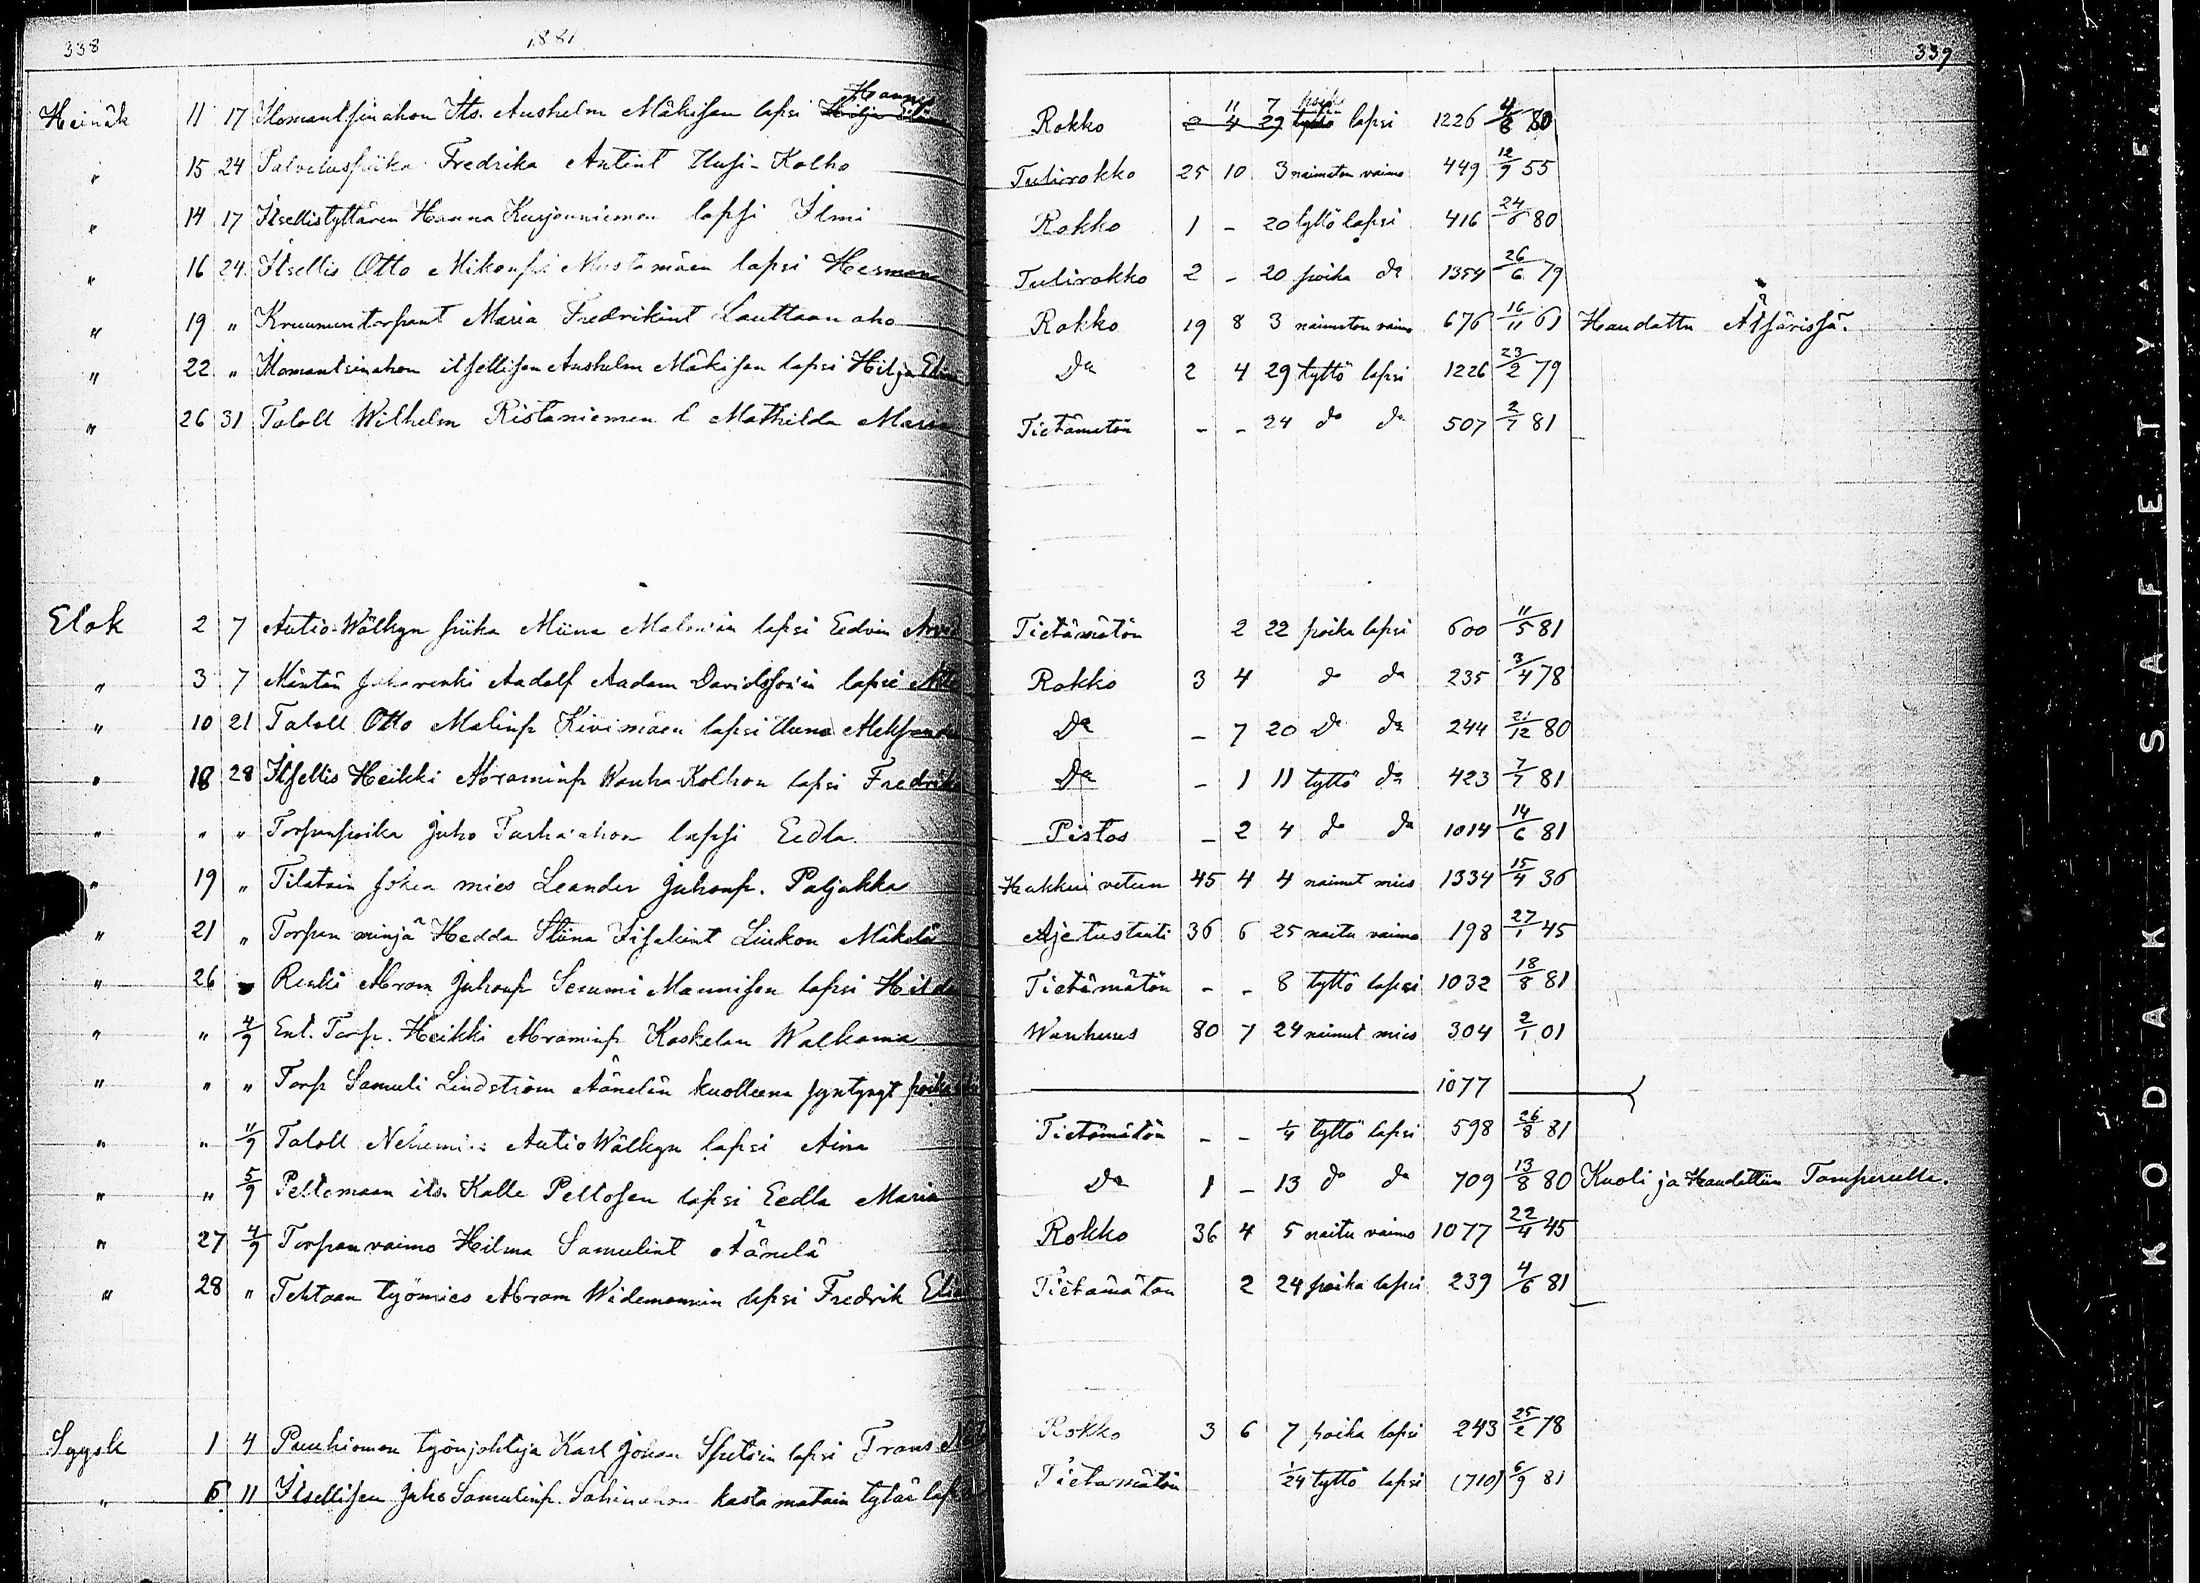 338 1881 339
Heinäk 11 17 Ilomantsinahon Its. Anshelm Mäkisen lapsi Hilja Hannes Rokko 2 4 29 11 7 tyttö poika lapsi 1226 4/8 80
" 15 24 Palveluspiika Fredrika Antint Uusi-Kolho Tulirokko 25 10 3 naimaton vaimo 449 12/9 55
" 14 17 Itsellistyttären Hanna Kurjenniemen lapsi Ilmi Rokko 1 - 20 tyttö lapsi 416 24/6 80
" 16 24 Itsellis Otto Mikonp Mustamäen lapsi Herman Tulirokko 2 - 20 poika do 1354 26/6 79
" 19 " Kruununtorpant Maria Fredrikint Lauttaanaho Rokko 19 8 3 naimaton vaimo 676 16/11 61 Haudattu Ätsärissä.
" 22 " Ilomantsinahon itsellisen Anshelm Mäkisen lapsi Hilja Elin Do 2 4 29 tyttö lapsi 1226 23/2 79
" 26 31 Taloll Wilhelm Ristaniemen l Mathilda Maria Tietämätön - - 24 do do 507 2/7 81
Elok 2 7 Autio-Wälkyn piika Miina Malmin lapsi Eedvin Arvid Tietämätön 2 22 poika lapsi 600 11/5 81
" 3 7 Mäntän renki Aadolf Aadam Davidsson'in lapsi Rokko 3 4 do do 235 3/4 78
" 10 21 Taloll Otto Matinp Kivimäen lapsi Do - 7 20 Do do 244 21/12 80
" 18 28 Itsellis Heikki Abraminp Wanha-Kolhon lapsi Fredrika Do - 1 11 tyttö do 423 7/7 81
" " " Torpanpoika Juho Tarhaahon lapsi Eedla. Pistos - 2 4 do do 1014 14/6 81
" 19 " Tilatoin mies Leander Juhonp. Paljakka Hukkui veteen 45 4 4 nainut mies 1334 15/4 36
" 21 " Torpan minjä Hedda Stiina Liukon Mäkelä Ajetustauti 36 6 25 naitu vaimo 198 27/1 45
" 26 " Renki Abram Juhonp Mannisen lapsi Hilda Tietämätön - - 8 tyttö lapsi 1032 18/8 81
" " 4/9 Ent. Torp. Heikki Abraminp Koskelan Walkama Wanhuus 80 7 24 nainut mies 304 2/1 01
" " " Torp Samuli Lindström Äänelän kuolleena syntynyt poika 1077
" " 11/9 Taloll Nehemias Autio Wälkyn lapsi Aina Tietämätön - - 1/4 tyttö lapsi 598 26/8 81
" " 5/9 Peltomaan its. Kalle Peltosen lapsi Eedla Maria Do 1 - 13 do do 709 13/8 80 Kuoli ja Haudattiin Tampereella.
" 27 4/9 Torpan vaimo Hilma Samulint Äänelä Rokko 36 4 5 naitu vaimo 1077 22/4 45
" 28 " Tehtaan työmies Abram Widemannin lapsi Fredrik Tietämätön 2 24 poika lapsi 239 4/6 81
Syysk 1 4 Puuhiomon työnjohtaja Karl Johan lapsi Frans Rokko 3 6 7 poika lapsi 243 25/2 78
" 6 11 Itsellisen Juho Samulinp. Sahinahon kastamatoin tytär lapsi Tietämätön 1/24 tyttö lapsi (710) 6/9 81
KODAK SAFETY